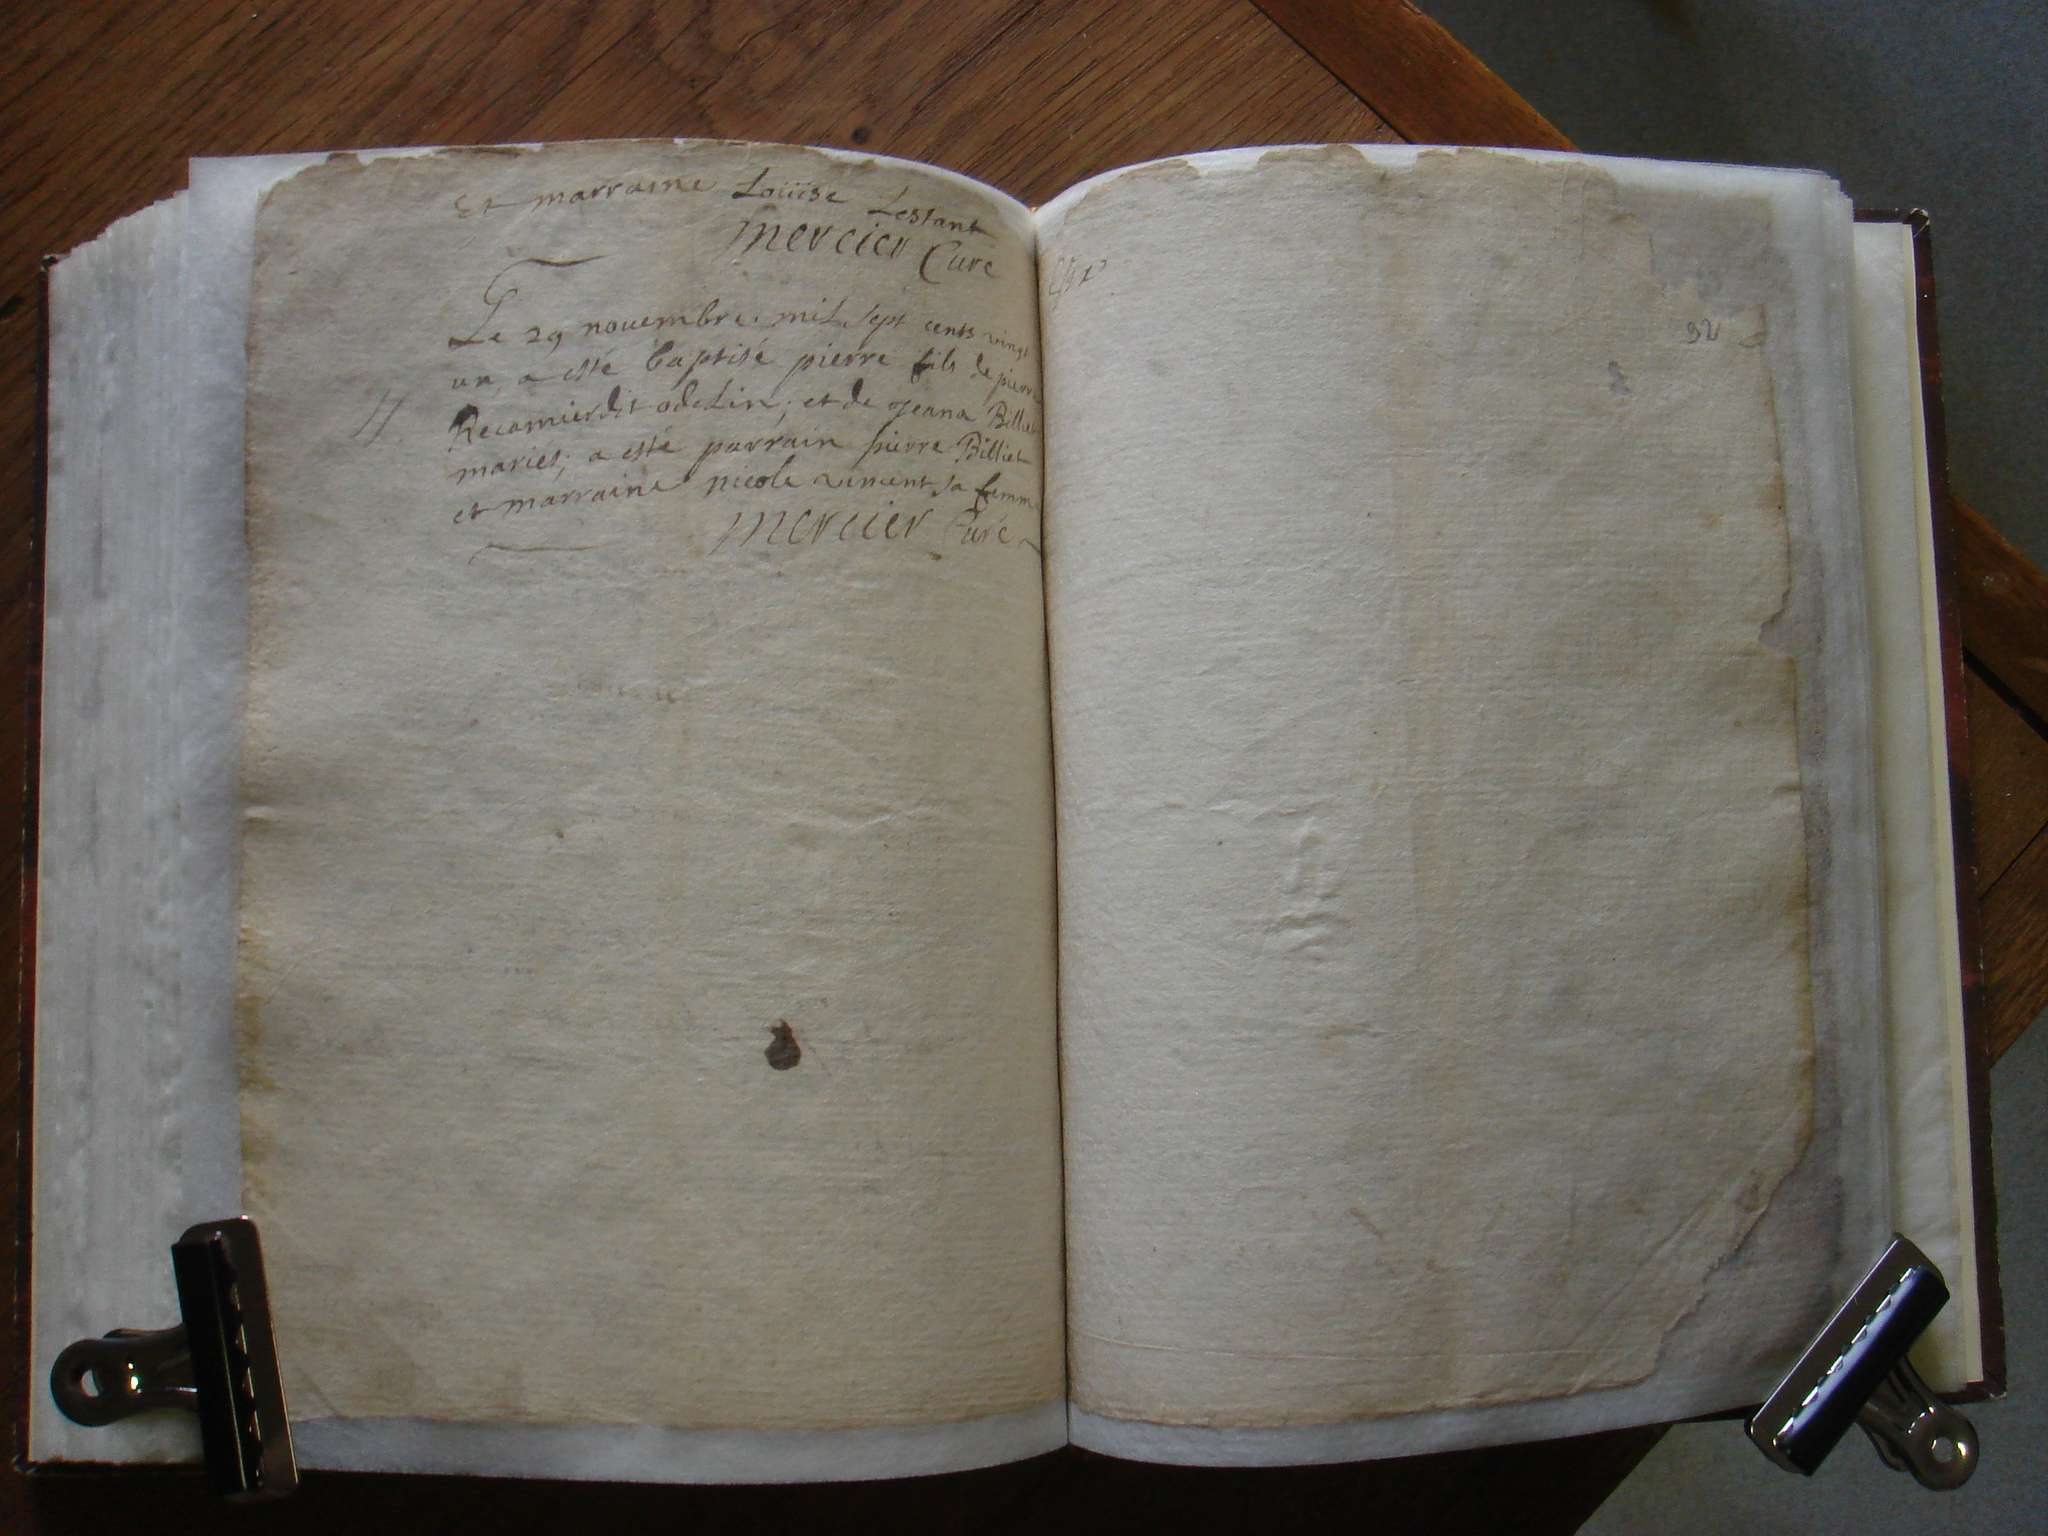 Et marraine Loüise Lestant
Mercier Curé
Le 29 novembre mil sept cents vingt
un, a esté baptisé pierre fils de pierre
Recamier dit odelin, et de Jeana Billiet
mariés, a esté parrain pierre Billiet
et marraine nicole sa femme
Mercier Curé
92